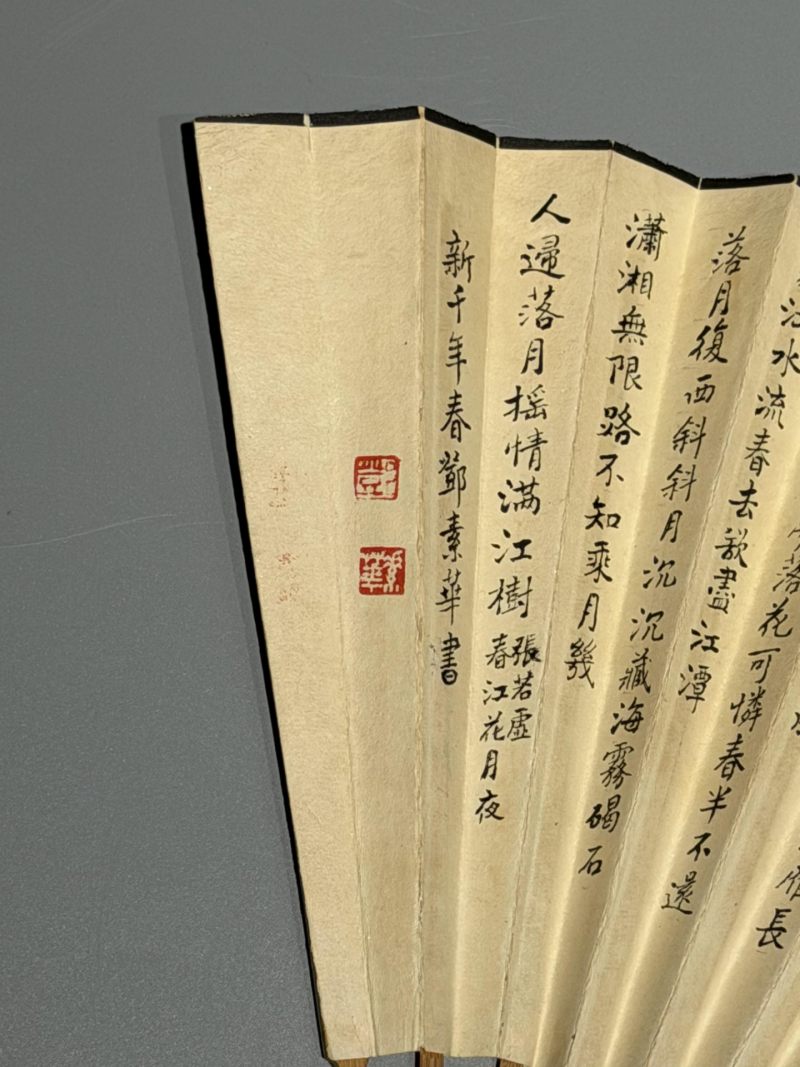 長
落花可憐春半不還
江水流春去欲盡江潭
落月復西斜斜月沉沉藏海霧碣石
瀟湘無限路不知乘月幾
人歸落月搖情滿江樹
張若虛
春江花月夜
新千年春鄧素華書
鄧
素華